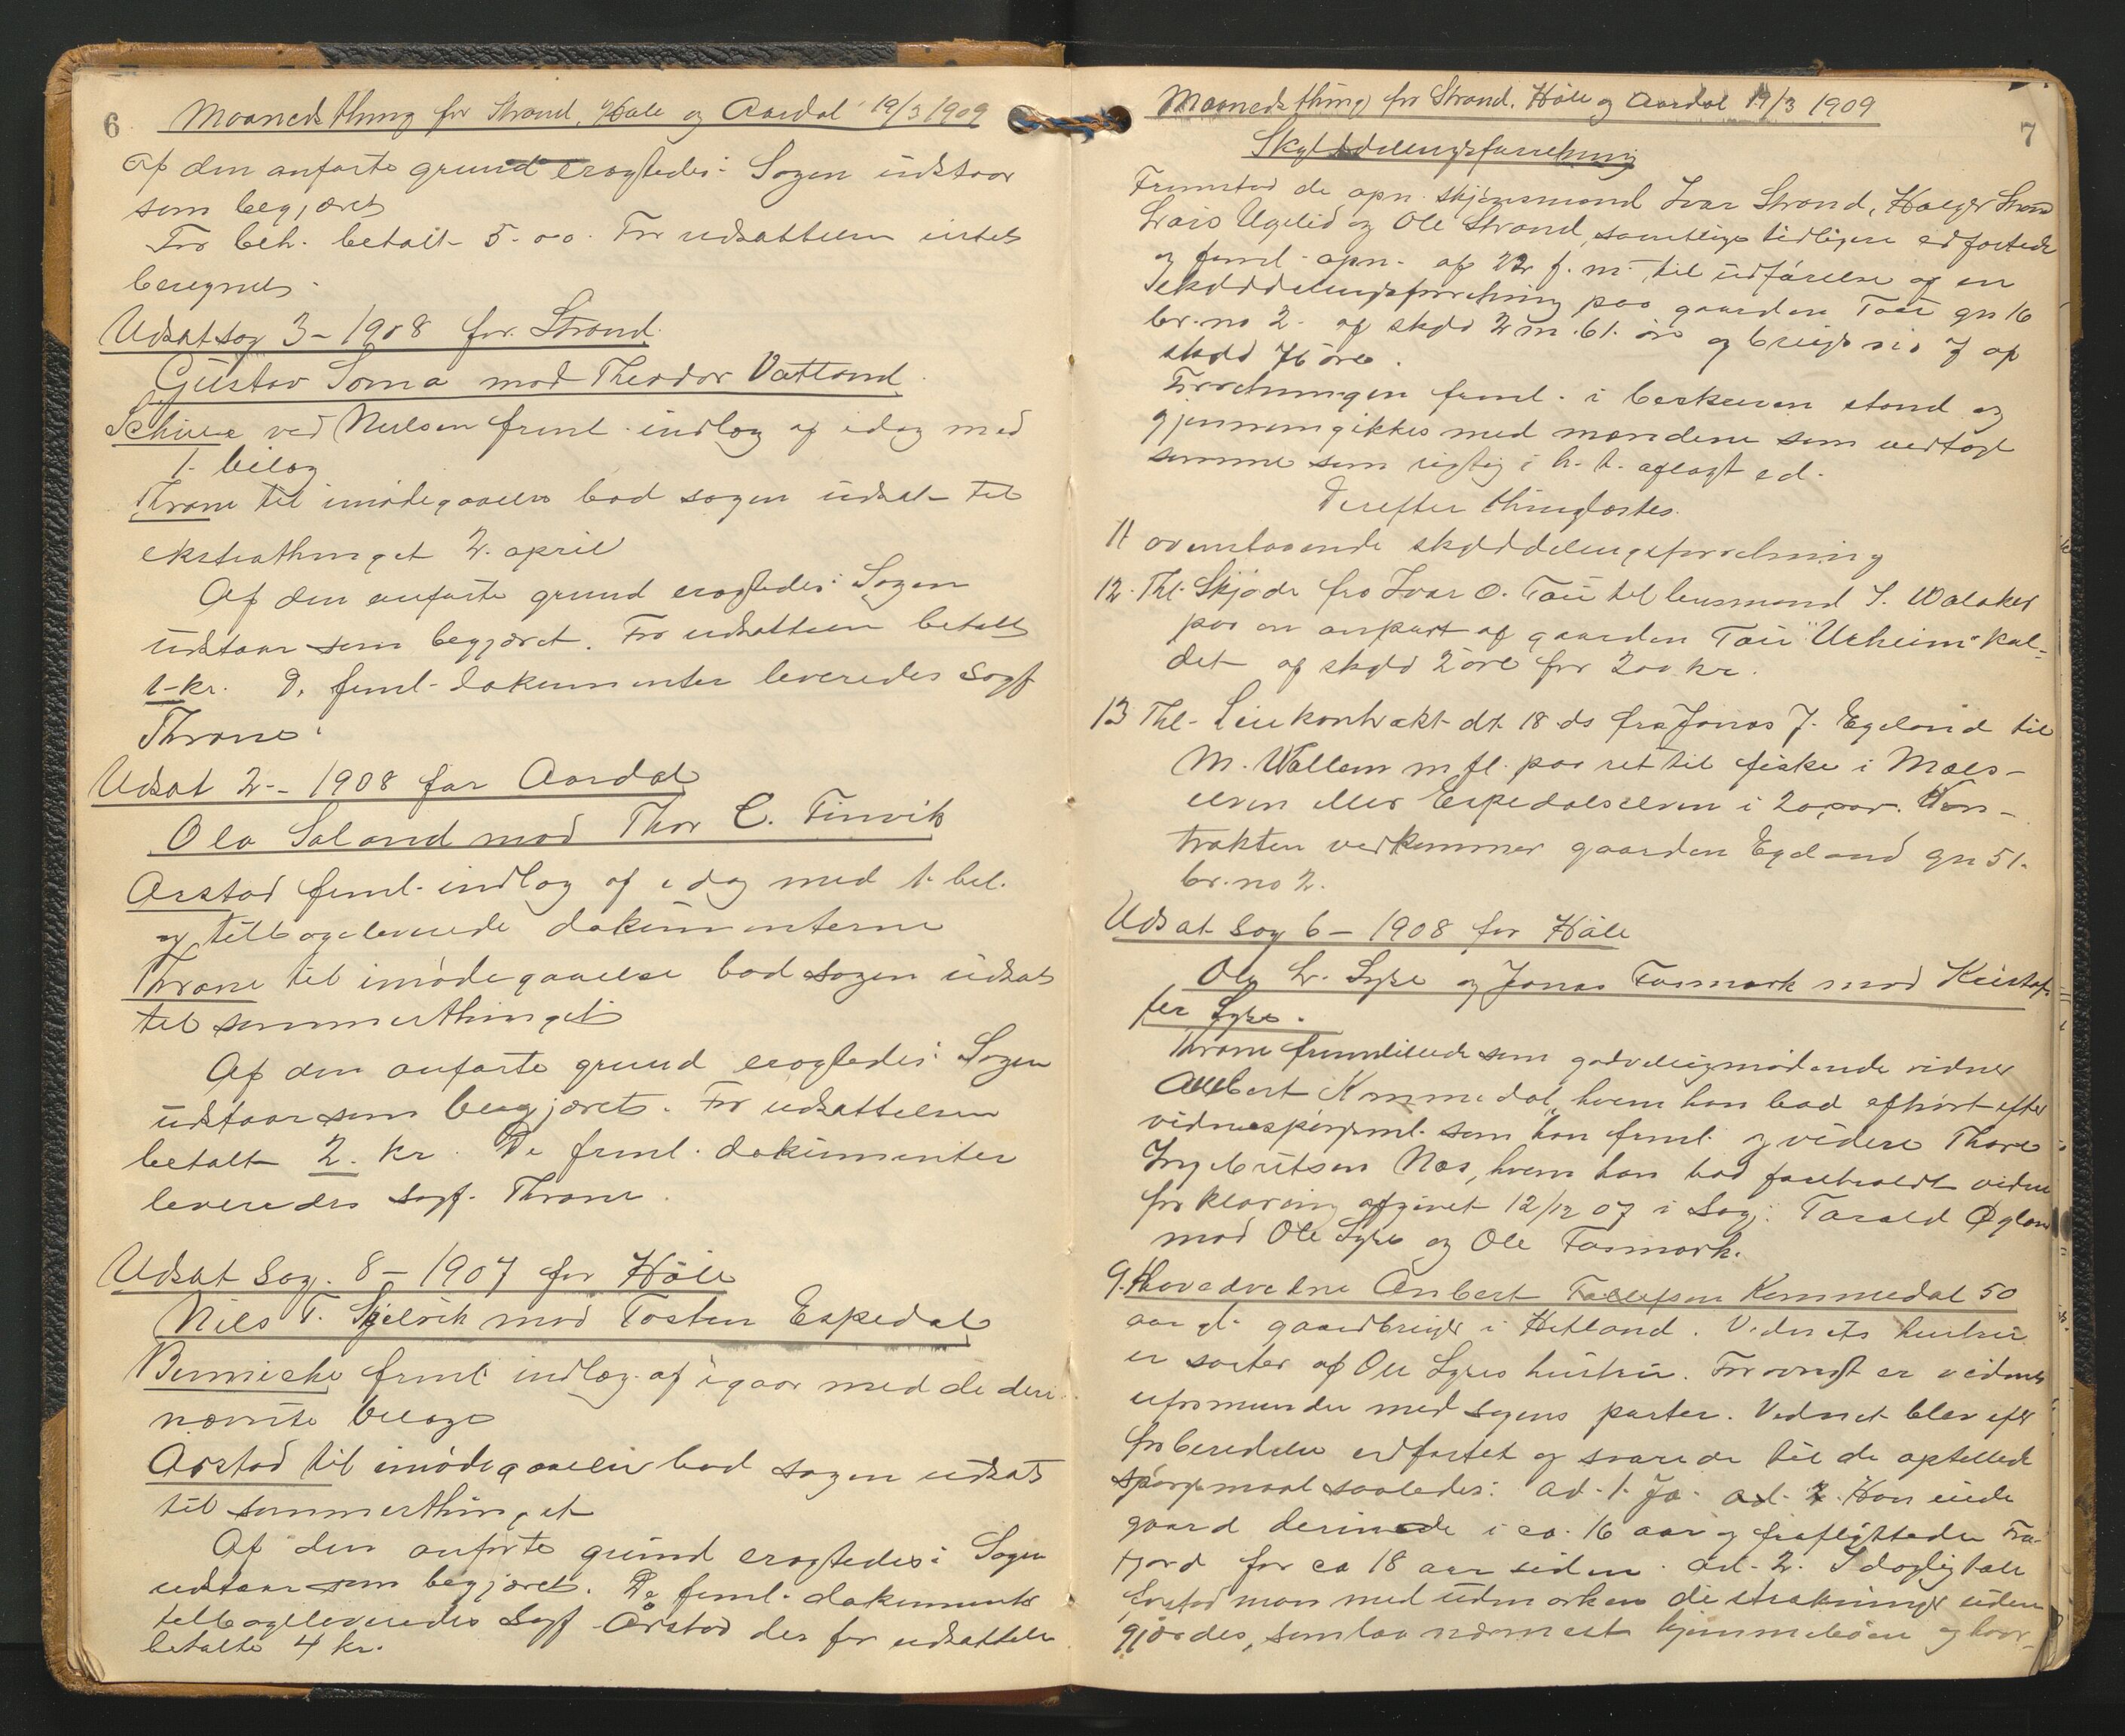 6
Maanedsthing for Strand, Høle og Aardal 19/3 1909
Af den anførte grund eragtedes: Sagen udstaar
som begjæret
For beh. betalt 5.00. For udsættelsen intet
beregnet.
Udsat sag 3 – 1908 for Strand.
Gustav Soma mod Theodor Vatland.
Schiøtz ved Nielsen freml. indlæg af idag med
1. bilag
Thrane til imødegaaelse bad sagen udsat til
ekstrathinget 2. april
Af den anførte grund eragtedes: Sagen
udstaar som begjæret. For udsættelsen betalt
1 kr. De freml. dokumenter leveredes sagf
Thrane.
Udsat 2 – 1908 for Aardal
Ola Saland mod Thor C. Finvik
Aarstad freml. indlæg af idag med 1. bil.
og tilbageleverede dokumenterne
Thrane til imødegaaelse bad sagen udsat
til sommerthinget
Af den anførte grund eragtedes: Sagen
udstaar som begjæret. For udsættelsen
betalt 2. kr. De freml. dokumenter
leveredes sagf. Thrane.
Udsat Sag. 8 – 1907 for Høle
Niels T. Skjelvik mod Tosten Espedal
Bennicke freml. indlæg af igaar med de deri
nævnte bilage
Aarstad til imødegaaelse bad sagen udsat
til sommerthinget
Af den anførte grund eragtedes: Sagen
udstaar som begjæret. De freml. dokumenter
tilbageleveredes Sagf Årstad der for udsættelse
betalte 4 kr.
7
Maanedsthing for Strand, Høle og Aardal 19/3 1909
Skylddelingsforretning
Fremstod de opn. skjønsmænd Ivar Strand, Holger Strand
Lars Ugelid og Ole Strand, samtlige tidligere edfæstede
og freml. opn. af 22 f. m. til udførelse af en
skylddelingsforretning paa gaarden Tau gn 16
br. no 2. af skyld 2 m. 61. øre og brugs no 7 af
skyld 76 øre.
Forretningen freml. i beskreven stand og
gjennemgikkes med mændene som vedtog
samme som rigtig i h. t. aflagt ed.
Derefter thinglæstes.
11 ovenstaaende skylddelingsforretning
12. Thl. Skjøde fra Ivar O. Tau til lensmand S. Walaker
paa en anpart af gaarden Tau "Urheim" kal-
det af skyld 2 øre for 200 kr.
13 Thl. Leiekontrakt dt. 18 ds fra Jonas J. Egeland til
M. Wallem m fl. paa ret til fiske i Maels-
elven eller Espedalselven i 20 aar. Kon-
trakten vedkommer gaarden Egeland gn 51.
br. no 2.
Udsat Sag 6 – 1908 for Høle
Ole L. Lyse og Jonas Fosmark mod Kristof-
fer Lyse.
Thrane fremstillede som godvilligmødende vidner
Aanbert Kommedal, hvem han bad afhørt efter
vidnespørgsml. som han freml. og videre Thore
Ingebretsen Næs, hvem han bad foreholdt vidne
forklaring afgivet 12/12 07 i Sag: Tarald Øglænd
mod Ole Lyse og Ole Fosmark.
9. Hovedvidne Anbert Tollefsen Kommedal 50
aar gl. gaardbruger i Hetland. Vidnets hustru
er søster af Ole Lyses hustru. Forøvrigt er vidnet
uformundet med sagens parter. Vidnet blev efter
forberedelse edfæstet og svarede til de opstillede
spørgsmaal saaledes: ad. 1. Ja. ad. 2. Han eiede
gaard derinde i ca. 16 aar og fraflyttede Fra-
fjord for ca 18 aar siden. ad. 2. I daglig tale
forstod man med udmarken de strækninger uden
gjærdes, som laa nærmest hjemmebøen og hvor-